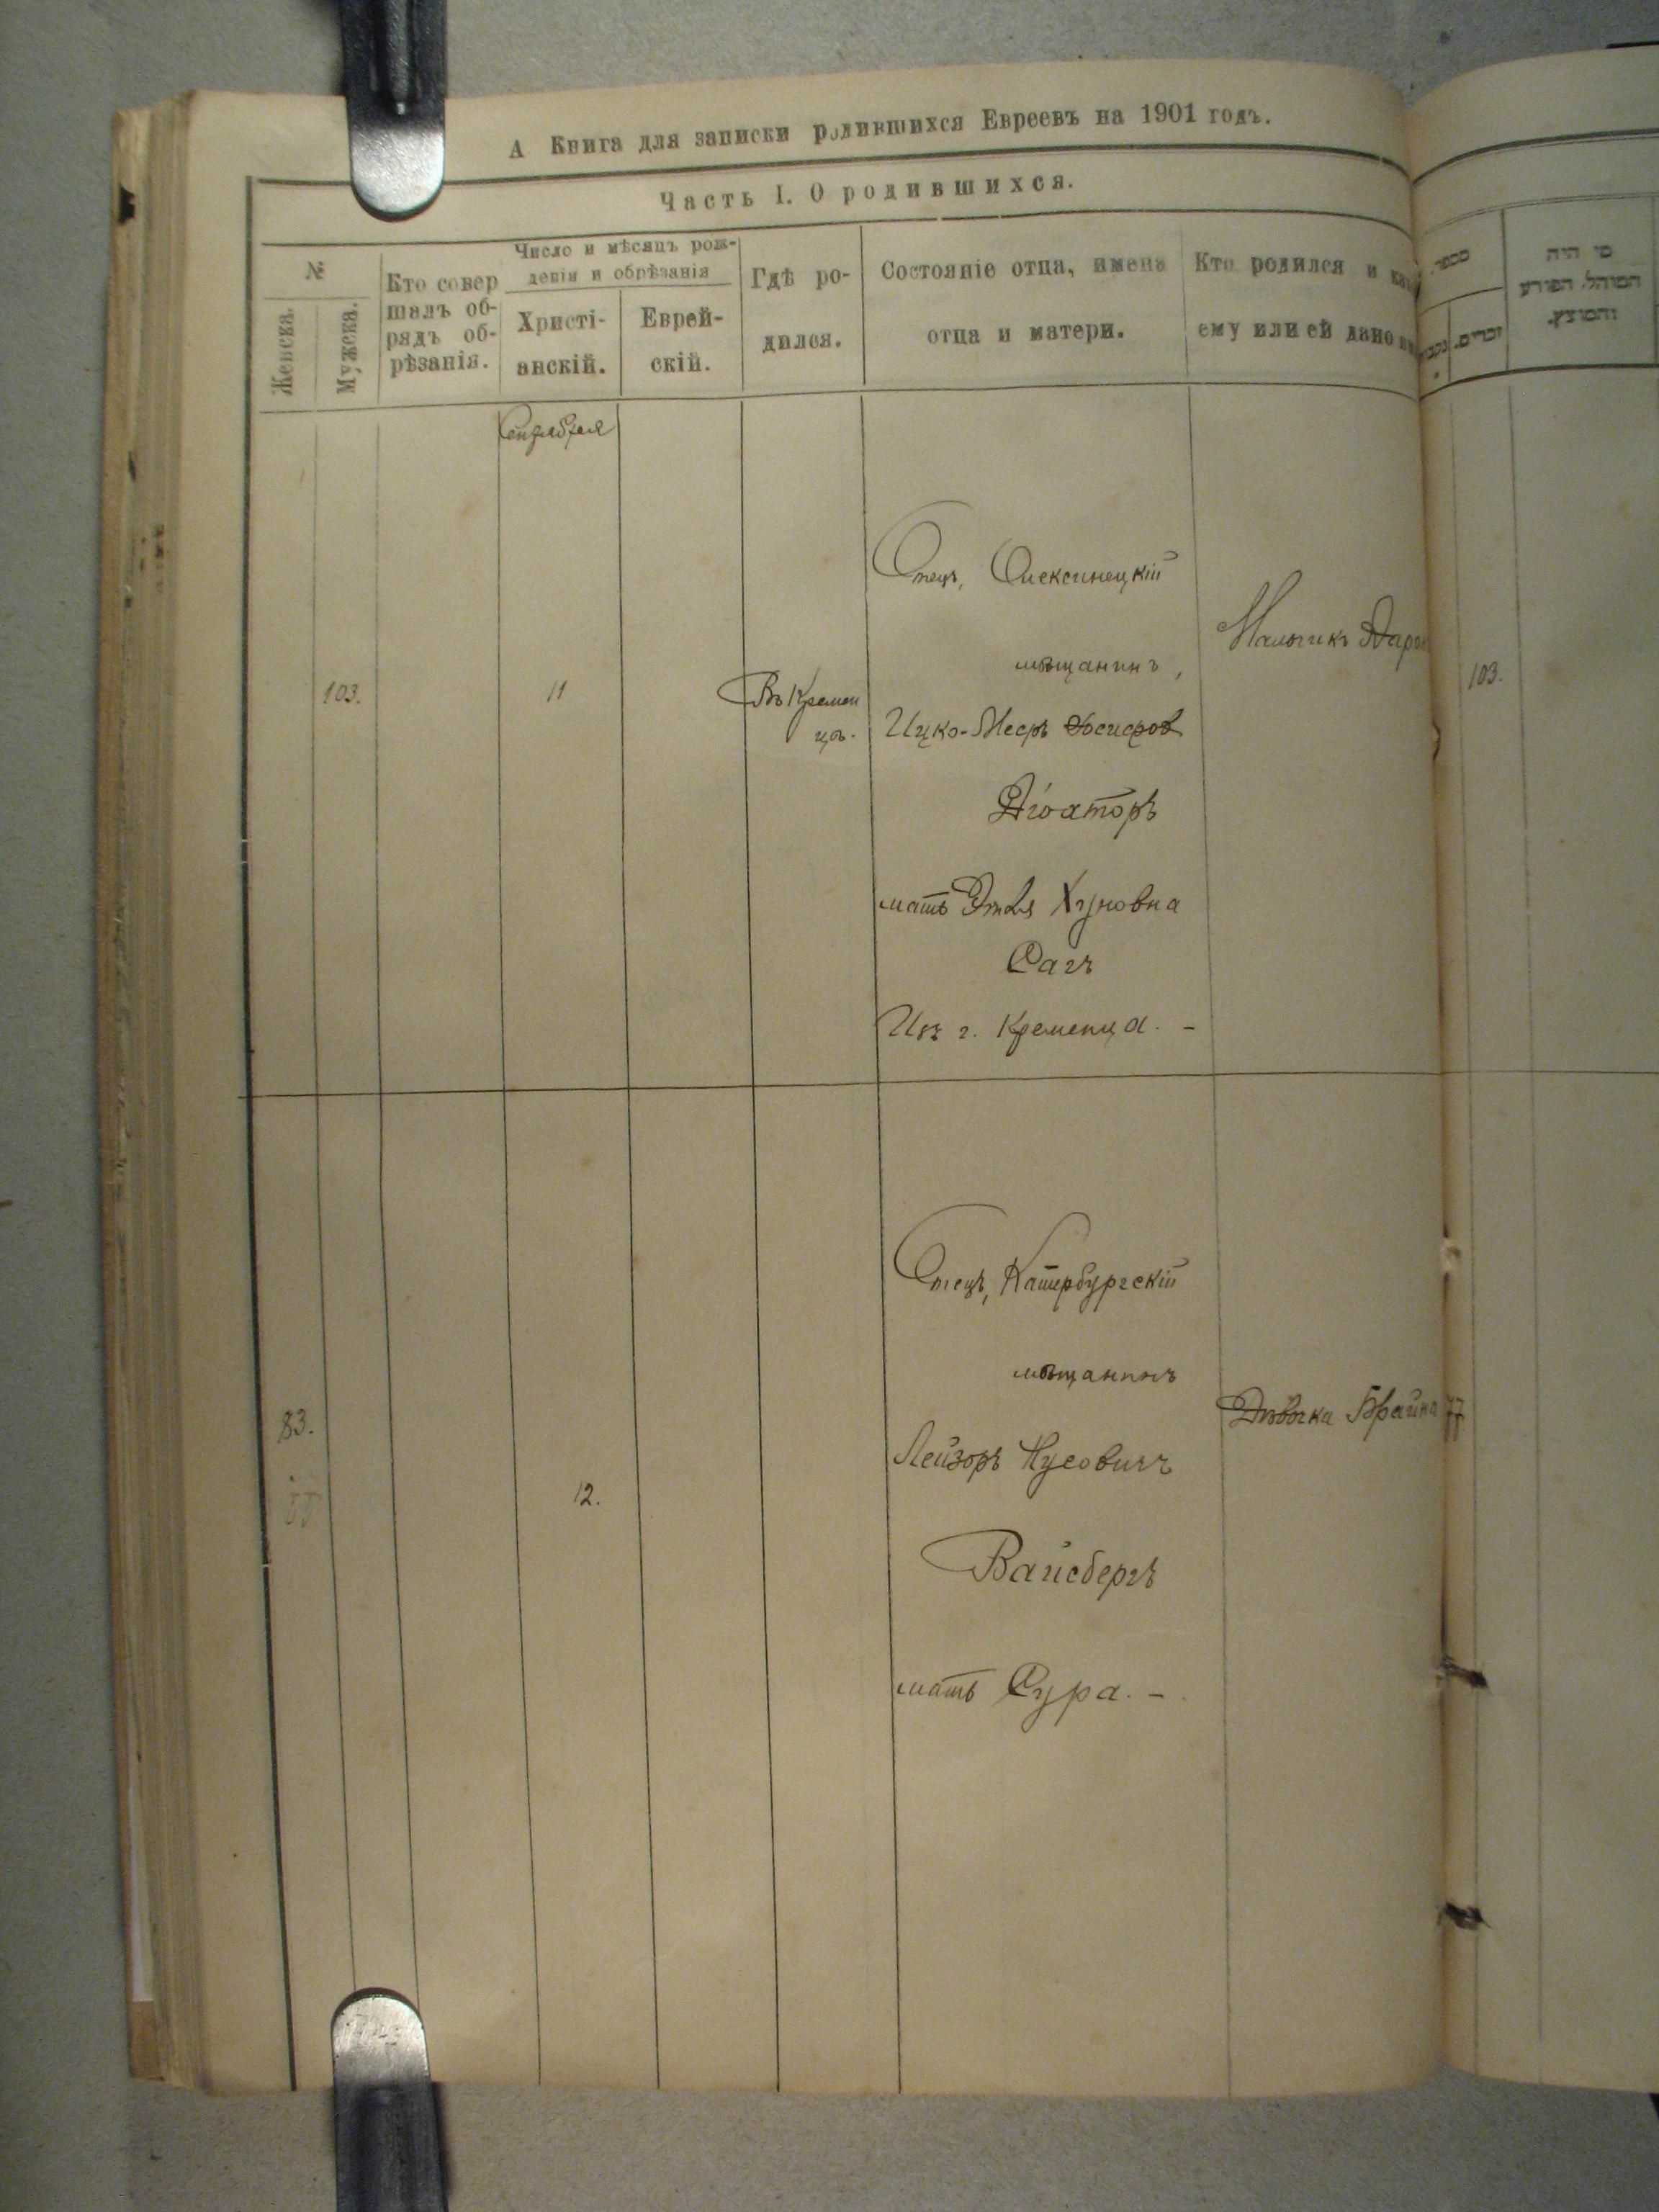 А Книга для записки родившихся Евреевъ на 1901 годъ.
Часть I. О родившихся.
№
Женска.
Мужска.
Кто совер
шалъ об-
рядъ об-
рѣзанія.
Число и мѣсяцъ рож-
денія и обрѣзанія
Христі-
анскій.
Еврей-
скій.
Гдѣ ро-
дился.
Состояніе отца, имена
отца и матери.
Кто родился и как
ему или ей дано
מספר
זכרים.
מי היה
המוהל, הפורע
והמוצץ.
Сентября
103.
11
Въ Кремен
цѣ.
Отецъ, Олексинецкій
мѣщанинъ,
Ицко-Мееръ Іосифов
мать Этля
Сагъ
Изъ г. Кременца. -
Мальчикъ Аарон
103.
83.
12.
Отецъ, Катербургскій
мѣщанинъ
Лейзоръ Нусовичъ
Вайсбергъ
мать Сура. -
Дѣвочка Брайна
77